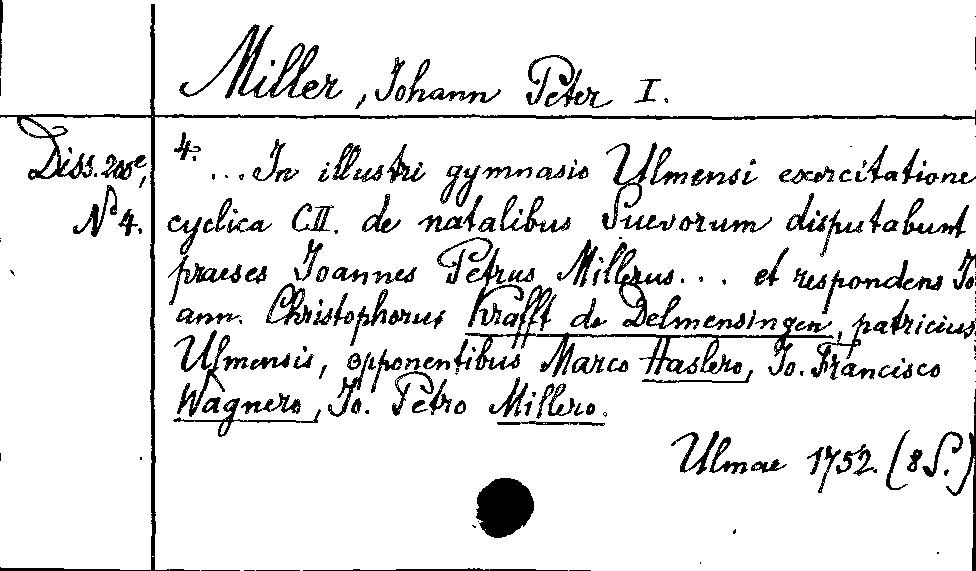 Miller, Johann Peter I.
Diss. 200e,
No 4.
4.
...In illustri gymnasio Ulmensi exercitatione
cyclica CII. de natalibus Suevorum disputabunt
praeses Ioannes Petrus Millerus... et respondens Io
ann. Christophorus Krafft de Delmensingen, patricius
Ulmensis, opponentibus Marco Haslero, Io. Francisco
Wagnero, Io. Petro Millero.
Ulmae 1752. (8 S.)